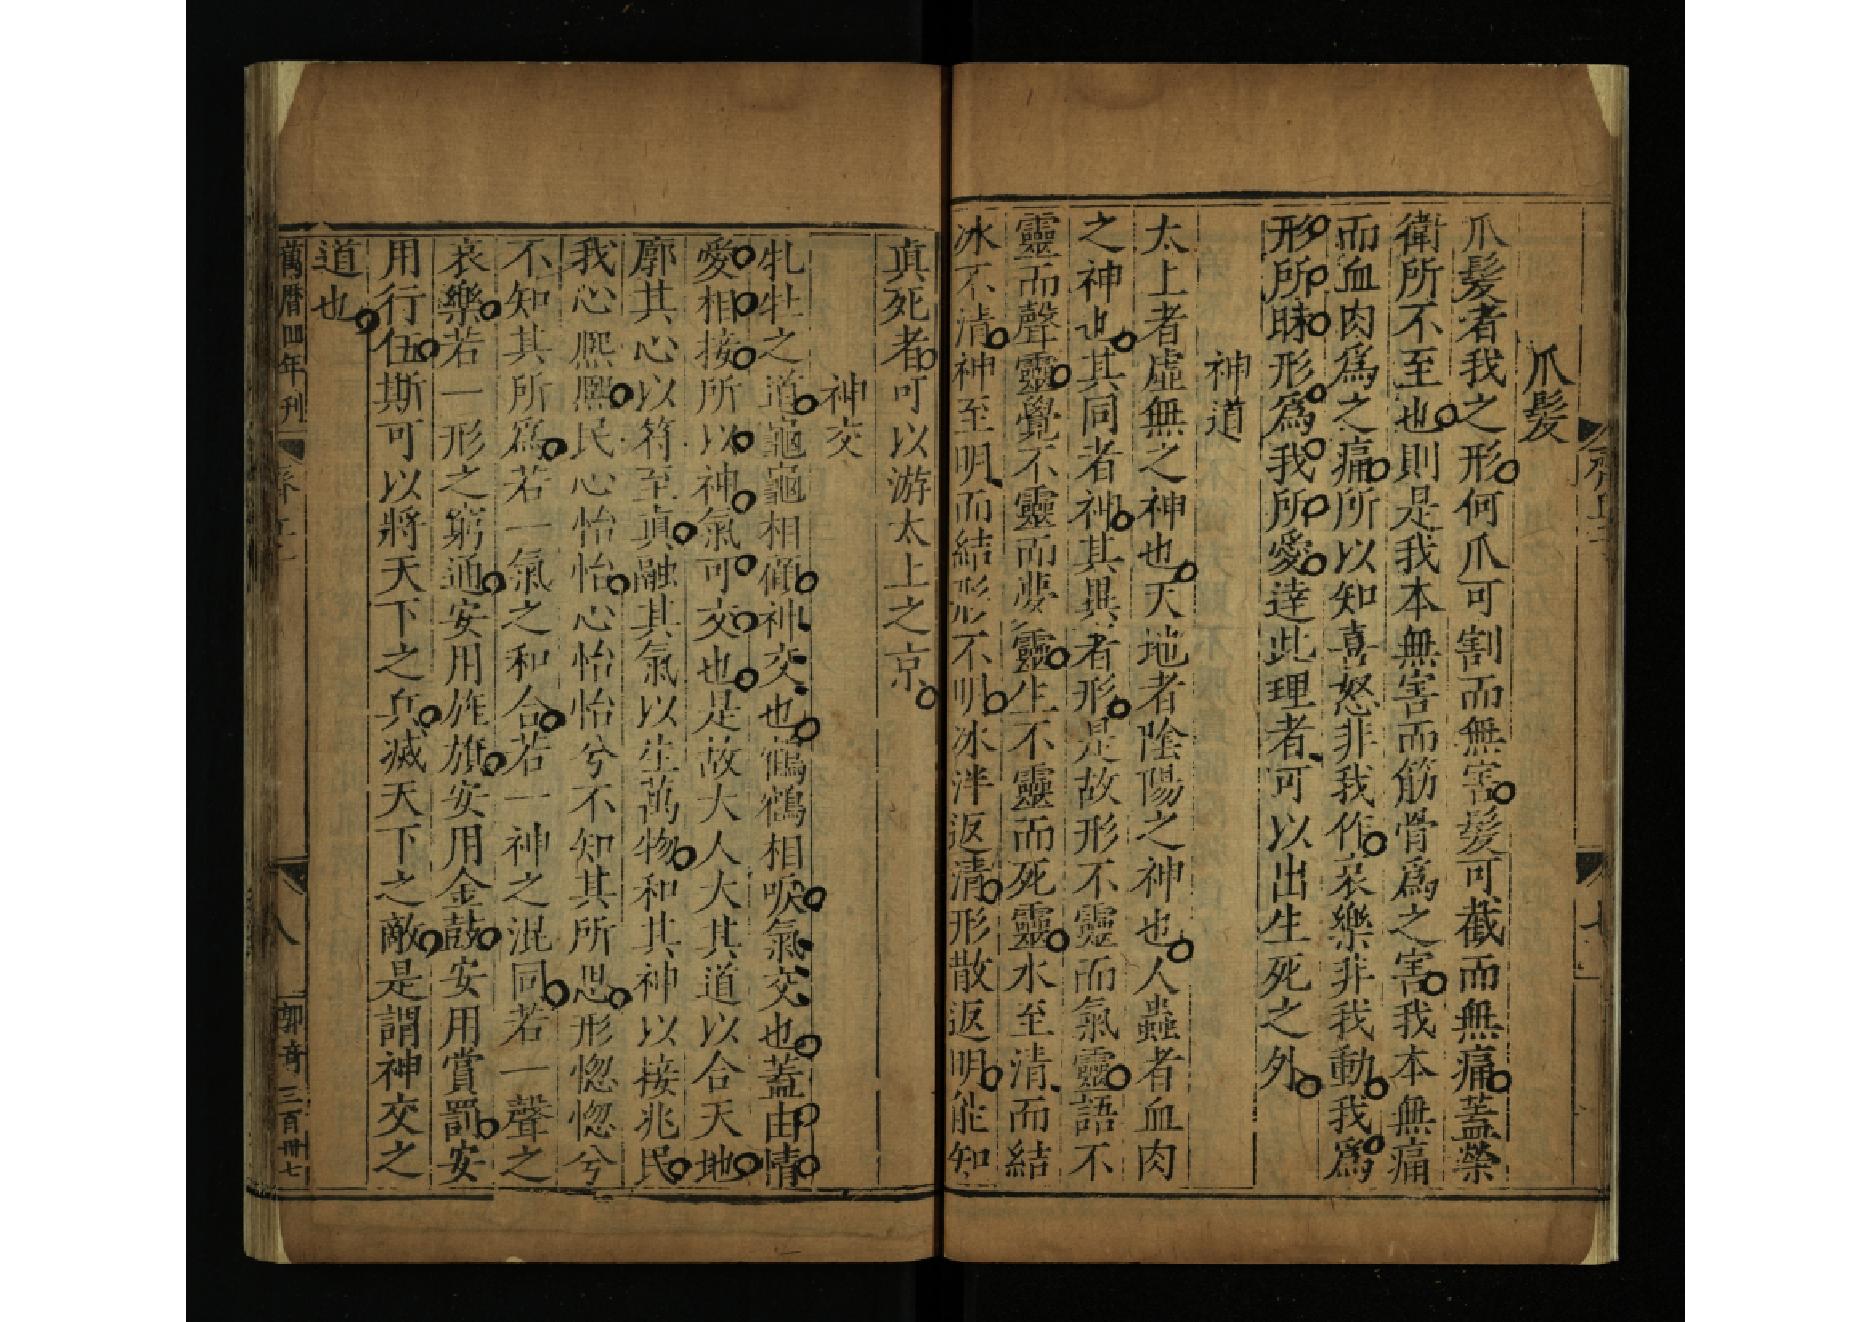 爪髮
爪髮者我之形何爪可割而無害髮可截而無痛蓋榮
衛所不至也則是我本無害而筋骨爲之害我本無痛
而血肉爲之痛所以知喜怒非我作哀樂非我動我爲
形所昧形爲我所愛達此理者可以出生死之外
神道
太上者虛無之神也天地者陰陽之神也人蟲者血肉
之神也其同者神其異者形是故形不靈而氣靈語不
靈而聲靈覺不靈而夢靈生不靈而死靈水至清而結
冰不清神至明而結形不明冰泮返清形散返明能知
真死者可以游太上之京
神交
牝牡之道龜龜相顧神交也鶴鶴相唳氣交也蓋由情
愛相接所以神氣可交也是故大人大其道以合天地
廓其心以符至真融其氣以生萬物和其神以接兆民
我心熙熙民心怡怡心怡怡兮不知其所思形惚惚兮
不知其所爲若一氣之和合若一神之混同若一聲之
哀樂若一形之窮通安用旌旗安用金鼓安用賞罰安
用行伍斯可以將天下之兵滅天下之敵是謂神交之
道也
萬曆四年刊
八
郭奇 三百卅七